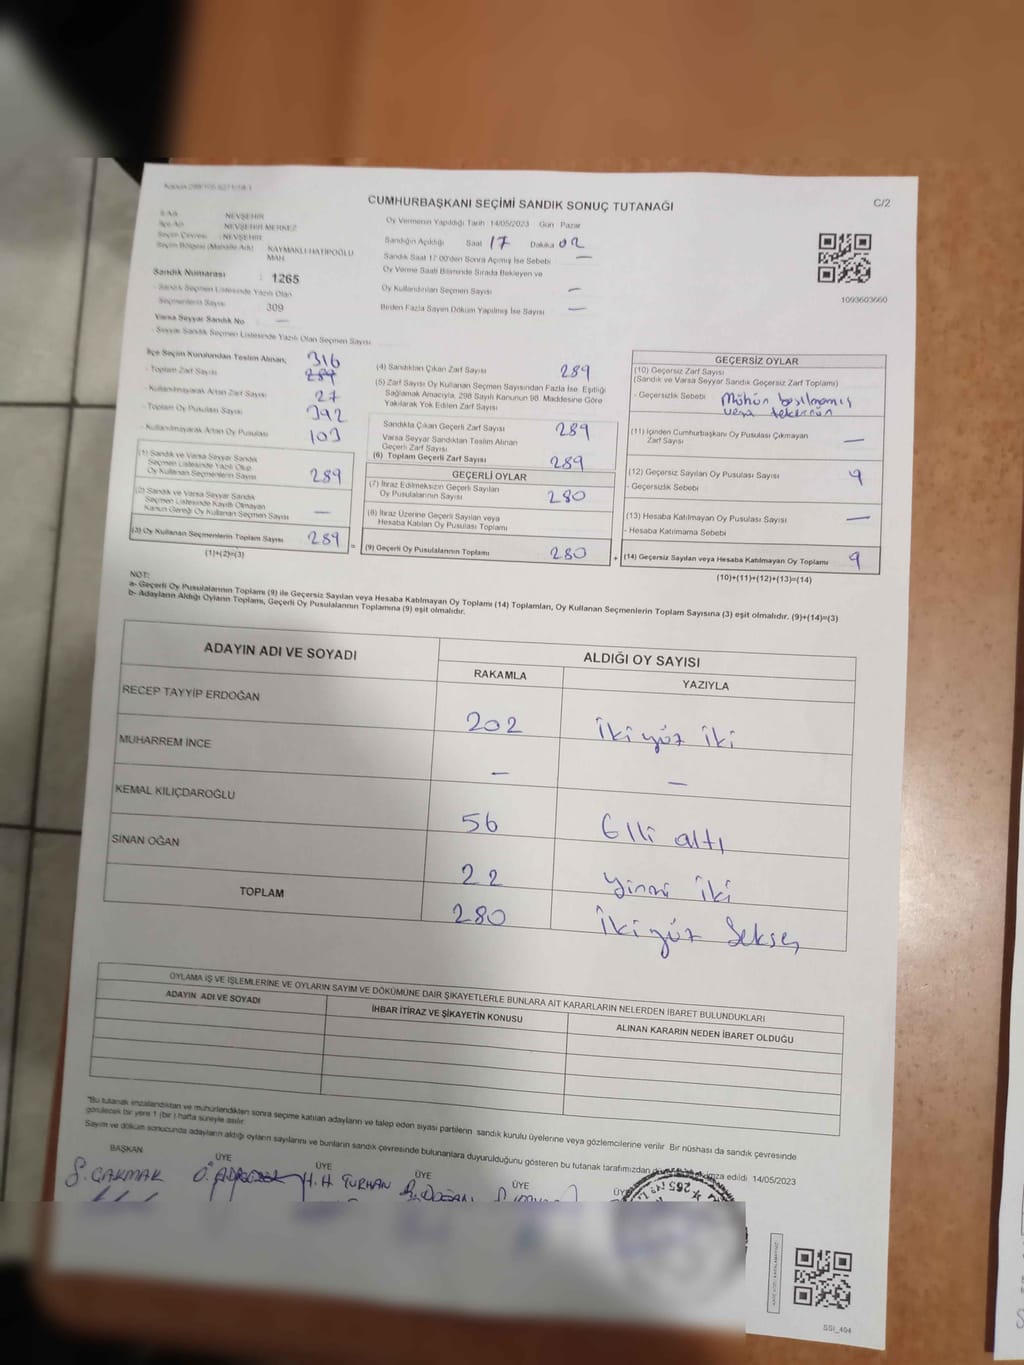 CUMHURBAŞKANI SEÇİMİ SANDIK SONUÇ TUTANAĞI
C/2
NEVŞEHİR
NEVŞEHİR MERKEZ
Seçim Çevresi : NEVŞEHİR
Seçim Bölgesi (Mahalle Adı) : KAYMAKLI HATİPOĞLU MAH.
Sandık Numarası : 1265
- Sandık Seçmen Listesinde Yazılı Olan
Seçmenlerin Sayısı 309
Varsa Seyyar Sandık No —
- Seyyar Sandık Seçmen Listesinde Yazılı Olan Seçmen Sayısı
Oy Vermenin Yapıldığı Tarih 14/05/2023 Gün Pazar
Sandığın Açıldığı Saat 17 Dakika 02
Sandık Saat 17.00'den Sonra Açılmış İse Sebebi —
Oy Verme Saati Bitiminde Sırada Bekleyen ve
Oy Kullandırılan Seçmen Sayısı —
Birden Fazla Sayım Döküm Yapılmış İse Sayısı —
1093603660
İlçe Seçim Kurulundan Teslim Alınan; 316
- Toplam Zarf Sayısı 289
- Kullanılmayarak Artan Zarf Sayısı 27
- Toplam Oy Pusulası Sayısı 392
- Kullanılmayarak Artan Oy Pusulası 103
(1) Sandık ve Varsa Seyyar Sandık
Seçmen Listesinde Yazılı Olup
Oy Kullanan Seçmenlerin Sayısı 289
(2) Sandık ve Varsa Seyyar Sandık
Seçmen Listesinde Kayıtlı Olmayan
Kanun Gereği Oy Kullanan Seçmen Sayısı —
(3) Oy Kullanan Seçmenlerin Toplam Sayısı 289
(1)+(2)=(3)
(4) Sandıktan Çıkan Zarf Sayısı 289
(5) Zarf Sayısı Oy Kullanan Seçmen Sayısından Fazla İse, Eşitliği
Sağlamak Amacıyla, 298 Sayılı Kanunun 98. Maddesine Göre
Yakılarak Yok Edilen Zarf Sayısı
Sandıkta Çıkan Geçerli Zarf Sayısı 289
Varsa Seyyar Sandıktan Teslim Alınan
Geçerli Zarf Sayısı
(6) Toplam Geçerli Zarf Sayısı 289
GEÇERLİ OYLAR
(7) İtiraz Edilmeksizin Geçerli Sayılan
Oy Pusulalarının Sayısı 280
(8) İtiraz Üzerine Geçerli Sayılan veya
Hesaba Katılan Oy Pusulası Toplamı
= (9) Geçerli Oy Pusulalarının Toplamı 280
GEÇERSİZ OYLAR
(10) Geçersiz Zarf Sayısı
(Sandık ve Varsa Seyyar Sandık Geçersiz Zarf Toplamı)
- Geçersizlik Sebebi Mühür basılmamış
veya tekerrür
(11) İçinden Cumhurbaşkanı Oy Pusulası Çıkmayan
Zarf Sayısı —
(12) Geçersiz Sayılan Oy Pusulası Sayısı 9
- Geçersizlik Sebebi
(13) Hesaba Katılmayan Oy Pusulası Sayısı —
- Hesaba Katılmama Sebebi
+ (14) Geçersiz Sayılan veya Hesaba Katılmayan Oy Toplamı 9
(10)+(11)+(12)+(13)=(14)
NOT:
a- Geçerli Oy Pusulalarının Toplamı (9) ile Geçersiz Sayılan veya Hesaba Katılmayan Oy Toplamı (14) Toplamları, Oy Kullanan Seçmenlerin Toplam Sayısına (3) eşit olmalıdır. (9)+(14)=(3)
b- Adayların Aldığı Oyların Toplamı, Geçerli Oy Pusulalarının Toplamına (9) eşit olmalıdır.
ADAYIN ADI VE SOYADI
ALDIĞI OY SAYISI
RAKAMLA YAZIYLA
RECEP TAYYİP ERDOĞAN 202 İki yüz iki
MUHARREM İNCE — —
KEMAL KILIÇDAROĞLU 56 Elli altı
SİNAN OĞAN 22 Yirmi iki
TOPLAM 280 İki yüz seksen
OYLAMA İŞ VE İŞLEMLERİNE VE OYLARIN SAYIM VE DÖKÜMÜNE DAİR ŞİKAYETLERLE BUNLARA AİT KARARLARIN NELERDEN İBARET BULUNDUKLARI
ADAYIN ADI VE SOYADI İHBAR İTİRAZ VE ŞİKAYETİN KONUSU ALINAN KARARIN NEDEN İBARET OLDUĞU
*Bu tutanak imzalandıktan ve mühürlendikten sonra seçime katılan adayların ve talep eden siyasi partilerin sandık kurulu üyelerine veya gözlemcilerine verilir. Bir nüshası da sandık çevresinde
görülecek bir yere 1 (bir) hafta süreyle asılır.
Sayım ve döküm sonucunda adayların aldığı oyların sayılarını ve bunların sandık çevresinde bulunanlara duyurulduğunu gösteren bu tutanak tarafımızdan imza edildi. 14/05/2023
BAŞKAN ÜYE ÜYE ÜYE ÜYE ÜYE
S. ÇAKMAK H.H. TURHAN DOĞAN
SSI_404